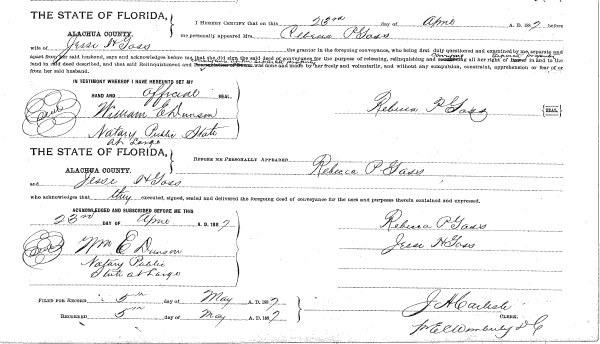 THE STATE OF FLORIDA,
ALACHUA COUNTY.
I HEREBY CERTIFY that on this 23rd day of April A. D. 1887 before
me personally appeared Mrs. Rebecca P Goss
wife of Jessi H Goss the grantor in the foregoing conveyance, who being first duly questioned and examined by me, separate and
apart from her said husband, says and acknowledges before me that she did sign the said deed of conveyance for the purpose of releasing, relinquishing and all her right of in and to the
land in said deed described, and that said Relinquishment and was done and made by her freely and voluntarily, and without any compulsion, constraint, apprehension or fear of or
from her said husband.
IN TESTIMONY WHEREOF I HAVE HEREUNTO SET MY
HAND AND official SEAL
William E Dunson
Notary Public State
at Large
Seal
Rebecca P Goss
SEAL
THE STATE OF FLORIDA,
ALACHUA COUNTY.
BEFORE ME PERSONALLY APPEARED
Rebecca P Goss
and Jessi H Goss
who acknowledges that they executed, signed, sealed and delivered the foregoing deed of conveyance for the uses and purposes therein contained and expressed.
ACKNOWLEDGED AND SUBSCRIBED BEFORE ME THIS
23rd DAY OF April A. D. 1887
Seal
Wm E Dunson
Notary Public
State at Large
Rebecca P Goss
Jessi H Goss
FILED FOR RECORD 5th day of May A. D. 1887
RECORDED 5th day of May A. D. 1887
J A Carlisle
CLERK.